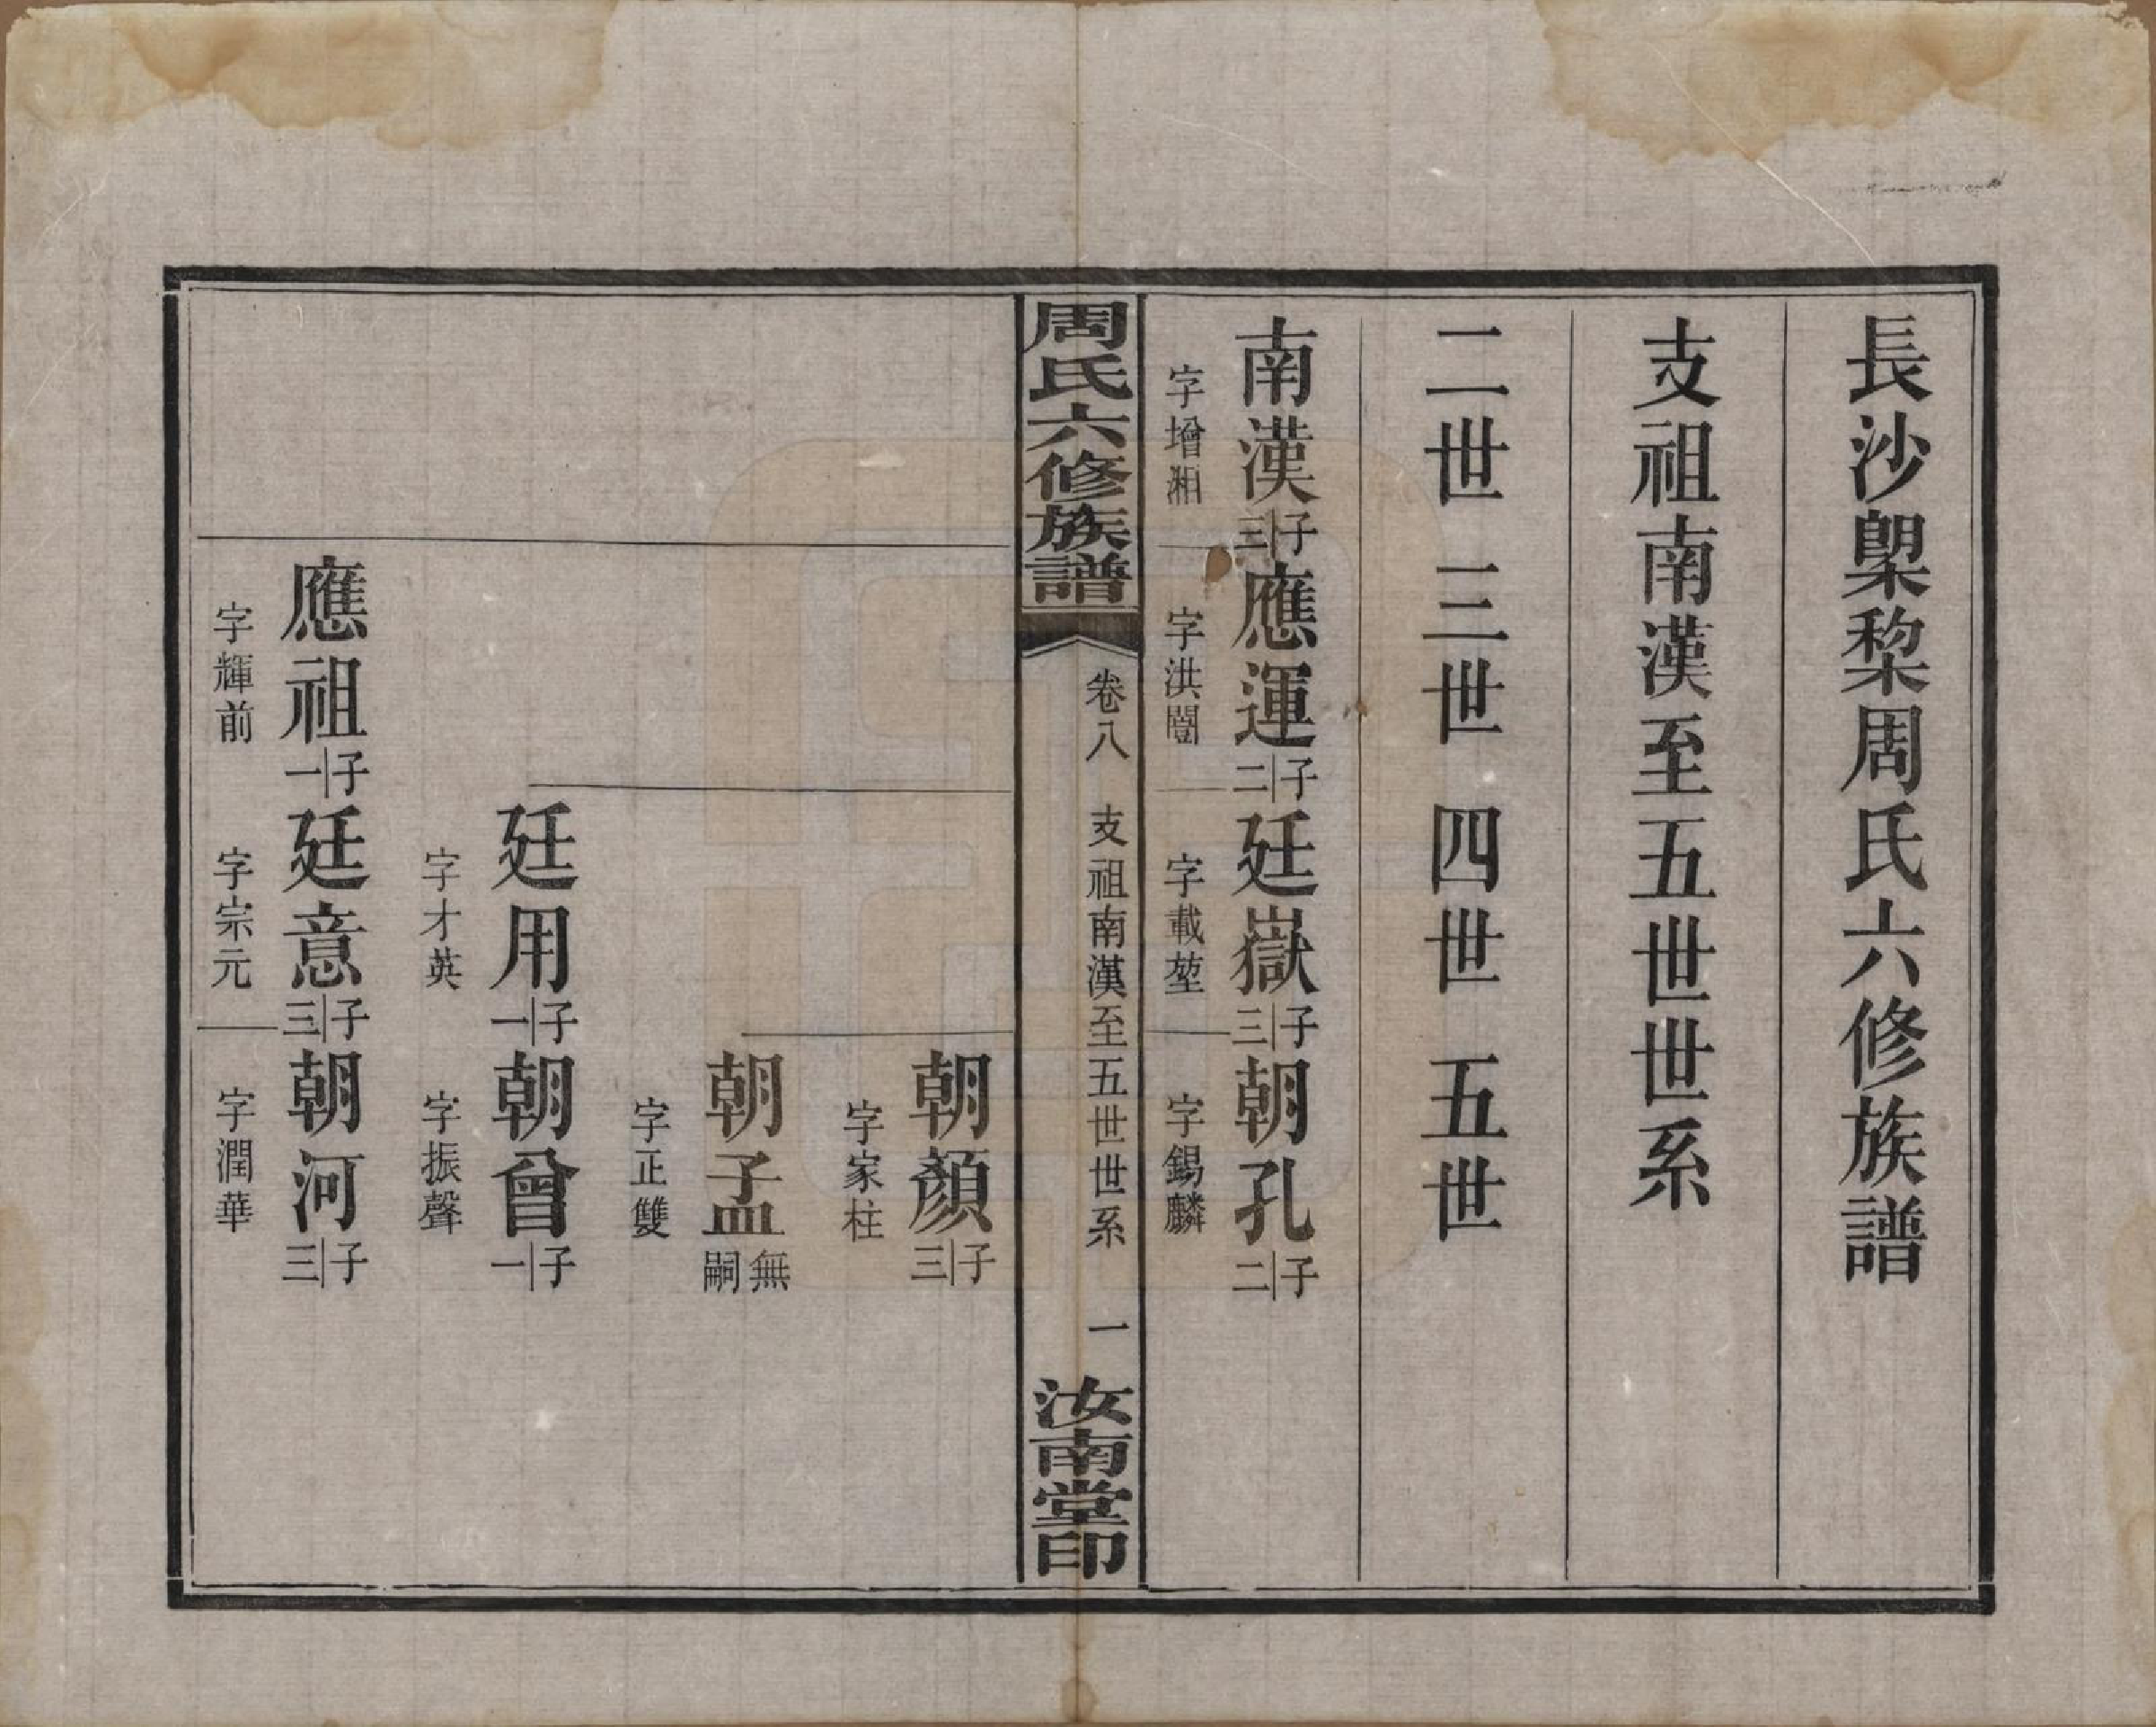 長沙㮚棃周氏六修族譜
支祖南漢至五世世系
二世 三世 四世 五世
南漢 子三 應運 子二 廷嶽 子三 朝孔 子二
字增湘 字洪闓 字載堃 字錫麟
周氏六修族譜 卷八 支祖南漢至五世世系 一 汝南堂印
朝顏 子三
字家柱
朝孟 無嗣
字正雙
廷用 子一 朝曾 子一
字才英 字振聲
應祖 子一 廷意 子三 朝河 子三
字輝前 字宗元 字潤華